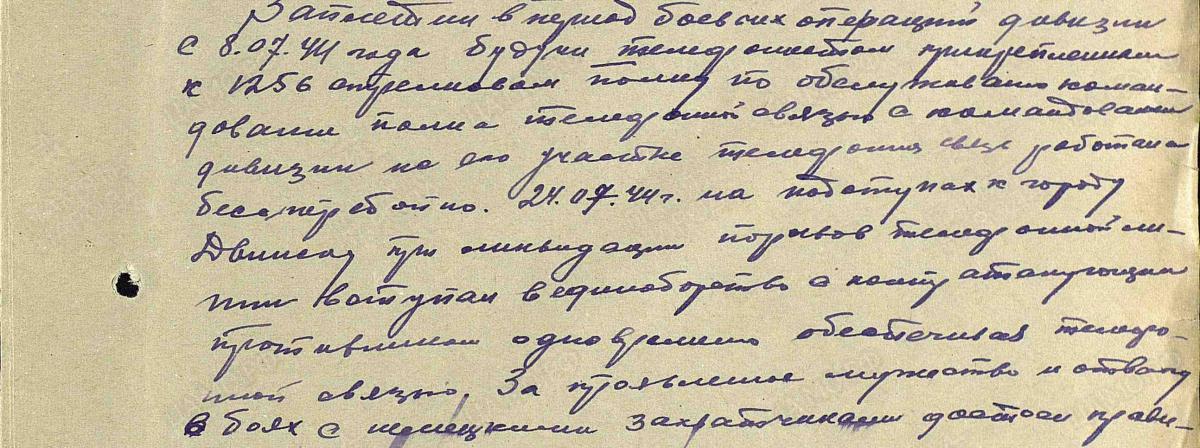 в период боевых операций дивизии
с 8.07.44 года будучи телефонистом прикрепленным
к 1256 стрелковом полку по обслуживанию коман-
дования полка телефонной связью с командованием
дивизии на его участке телефонная связь работала
бесперебойно. 24.07.44 г. на подступах к городу
Двинску при ликвидации порывов телефонной ли-
нии вступал в единоборство с контратакующим
противником одновременно обеспечивая телефо-
нной связью. За проявленное мужество и отвагу
в боях с немецкими захватчиками достоин прави-